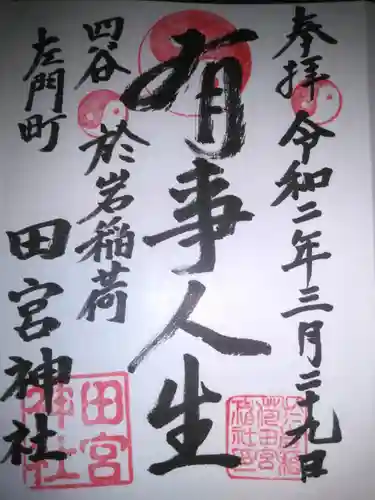 奉拝
令和二年三月二十九日
有事人生
四谷
於岩稲荷
左門町
田宮神社
田宮
神社